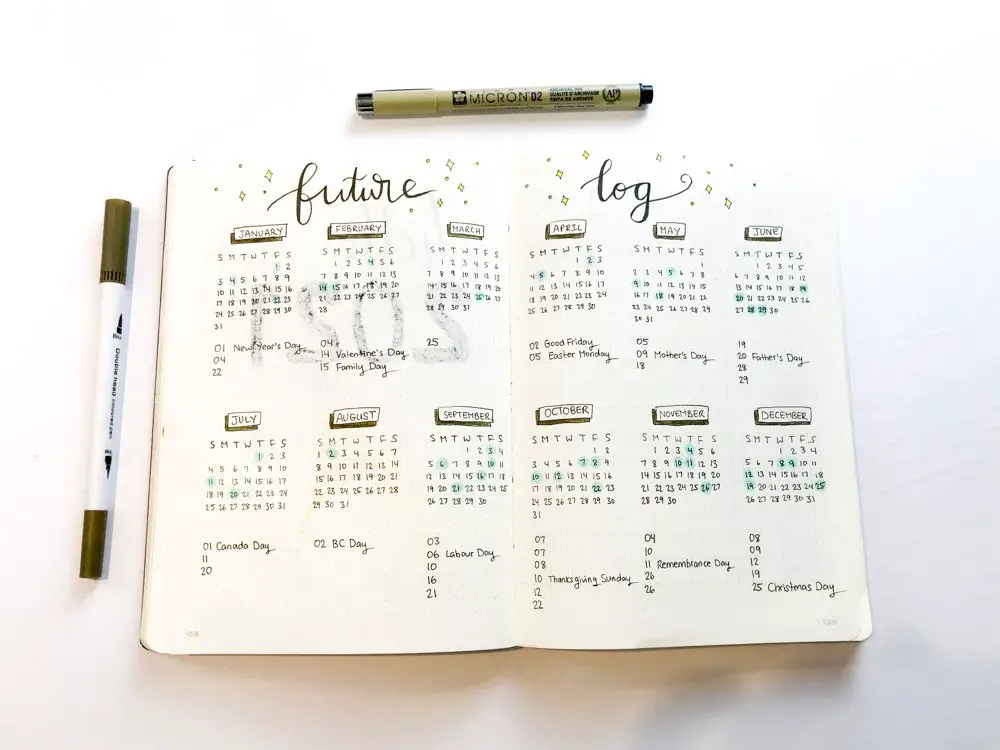 MICRON 02
ARCHIVAL INK
QUALITÉ D'ARCHIVAGE
TINTA DE ARCHIVE
AP
Double head coloured pen
future
log
JANUARY
S M T W T F S
1 2
3 4 5 6 7 8 9
10 11 12 13 14 15 16
17 18 19 20 21 22 23
24 25 26 27 28 29 30
31
01 New Year's Day
04
22
FEBRUARY
S M T W T F S
1 2 3 4 5 6
7 8 9 10 11 12 13
14 15 16 17 18 19 20
21 22 23 24 25 26 27
28
04
14 Valentine's Day
15 Family Day
MARCH
S M T W T F S
1 2 3 4 5 6
7 8 9 10 11 12 13
14 15 16 17 18 19 20
21 22 23 24 25 26 27
28 29 30 31
25
2021
APRIL
S M T W T F S
1 2 3
4 5 6 7 8 9 10
11 12 13 14 15 16 17
18 19 20 21 22 23 24
25 26 27 28 29 30
02 Good Friday
05 Easter Monday
MAY
S M T W T F S
1
2 3 4 5 6 7 8
9 10 11 12 13 14 15
16 17 18 19 20 21 22
23 24 25 26 27 28 29
30 31
05
09 Mother's Day
18
JUNE
S M T W T F S
1 2 3 4 5
6 7 8 9 10 11 12
13 14 15 16 17 18 19
20 21 22 23 24 25 26
27 28 29 30
19
20 Father's Day
28
29
JULY
S M T W T F S
1 2 3
4 5 6 7 8 9 10
11 12 13 14 15 16 17
18 19 20 21 22 23 24
25 26 27 28 29 30 31
01 Canada Day
11
20
AUGUST
S M T W T F S
1 2 3 4 5 6 7
8 9 10 11 12 13 14
15 16 17 18 19 20 21
22 23 24 25 26 27 28
29 30 31
02 BC Day
SEPTEMBER
S M T W T F S
1 2 3 4
5 6 7 8 9 10 11
12 13 14 15 16 17 18
19 20 21 22 23 24 25
26 27 28 29 30
03
06 Labour Day
10
16
21
OCTOBER
S M T W T F S
1 2
3 4 5 6 7 8 9
10 11 12 13 14 15 16
17 18 19 20 21 22 23
24 25 26 27 28 29 30
31
07
07
08
10 Thanksgiving Sunday
12
22
NOVEMBER
S M T W T F S
1 2 3 4 5 6
7 8 9 10 11 12 13
14 15 16 17 18 19 20
21 22 23 24 25 26 27
28 29 30
04
10
11 Remembrance Day
26
26
DECEMBER
S M T W T F S
1 2 3 4
5 6 7 8 9 10 11
12 13 14 15 16 17 18
19 20 21 22 23 24 25
26 27 28 29 30 31
08
09
12
19
25 Christmas Day
109